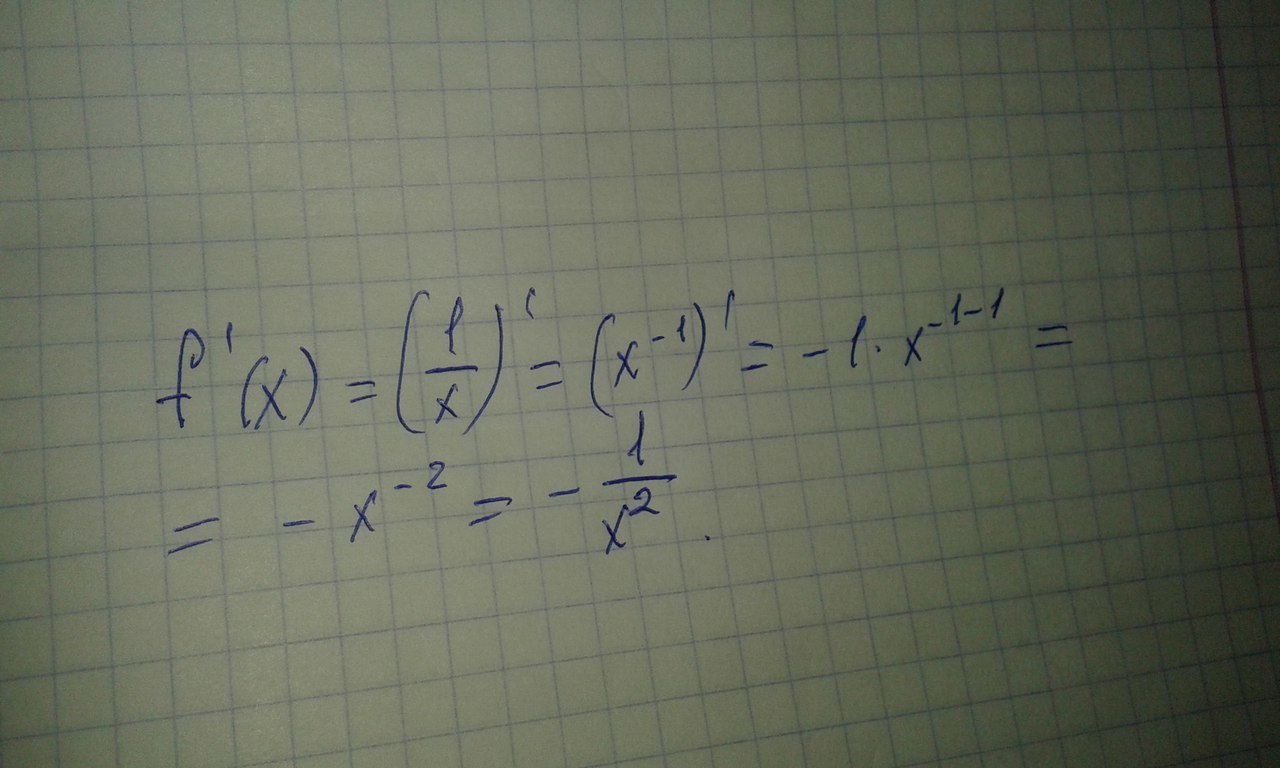 f'(x) = (1/x)' = (x^{-1})' = -1 · x^{-1-1} =
= - x^{-2} = - 1/x^{2}.